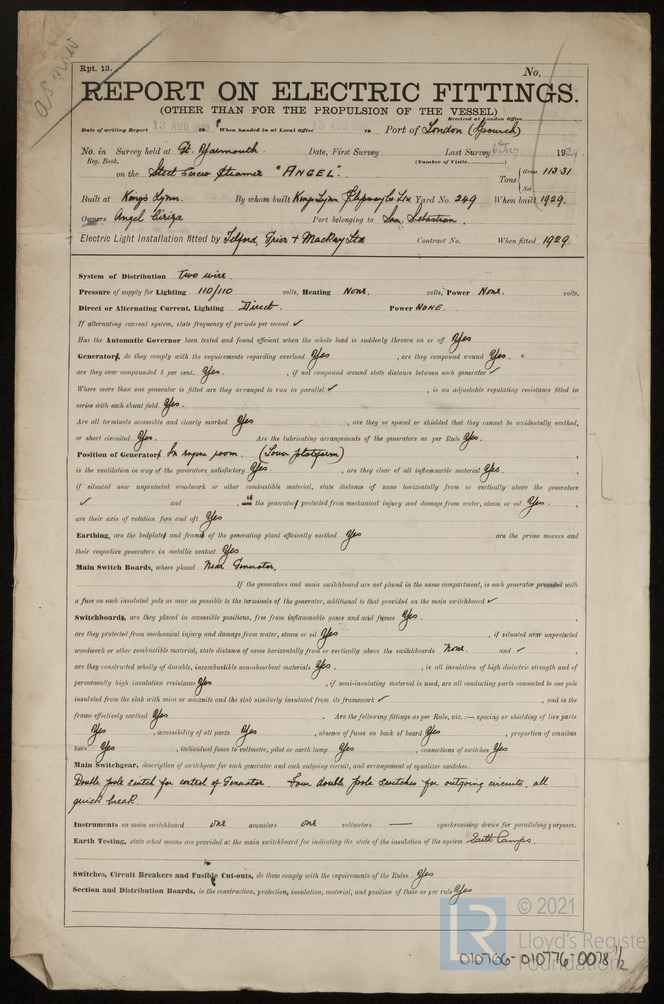 as now
Rpt. 13.
No.
REPORT ON ELECTRIC FITTINGS.
(OTHER THAN FOR THE PROPULSION OF THE VESSEL)
Received at London Office
Date of writing Report 13 AUG 19 When handed in at Local Office 19 Port of London (Ipswich)
No. in Survey held at Gt. Yarmouth. Date, First Survey Last Survey 19
Reg. Book. (Number of Visits)
on the Steel Screw Steamer "ANGEL". Tons { Gross 113.31
Net
Built at King's Lynn. By whom built Kings Lynn Slipway Co. Ltd Yard No. 249 When built 1929.
Owners Angel Ciriza Port belonging to San Sebastian.
Electric Light Installation fitted by Telford, Grier & Mackay Ltd Contract No. When fitted 1929
System of Distribution Two wire.
Pressure of supply for Lighting 110/110 volts, Heating None. volts, Power None. volts.
Direct or Alternating Current, Lighting Direct. Power NONE.
If alternating current system, state frequency of periods per second ✓
Has the Automatic Governor been tested and found efficient when the whole load is suddenly thrown on or off Yes
Generators, do they comply with the requirements regarding overload Yes , are they compound wound Yes.
are they over compounded 5 per cent. Yes. , if not compound wound state distance between each generator ✓
Where more than one generator is fitted are they arranged to run in parallel ✓ , is an adjustable regulating resistance fitted in
series with each shunt field Yes.
Are all terminals accessible and clearly marked Yes , are they so spaced or shielded that they cannot be accidentally earthed,
or short circuited Yes. Are the lubricating arrangements of the generators as per Rule Yes.
Position of Generators In engine room. (Low platform)
is the ventilation in way of the generators satisfactory Yes. , are they clear of all inflammable material Yes.
if situated near unprotected woodwork or other combustible material, state distance of same horizontally from or vertically above the generators
✓ and , is the generator protected from mechanical injury and damage from water, steam or oil Yes.
are their axis of rotation fore and aft Yes
Earthing, are the bedplates and frames of the generating plant efficiently earthed Yes are the prime movers and
their respective generators in metallic contact Yes
Main Switch Boards, where placed Near Generator,
If the generators and main switchboard are not placed in the same compartment, is each generator provided with
a fuse on each insulated pole as near as possible to the terminals of the generator, additional to that provided on the main switchboard ✓
Switchboards, are they placed in accessible positions, free from inflammable gases and acid fumes Yes.
are they protected from mechanical injury and damage from water, steam or oil Yes , if situated near unprotected
woodwork or other combustible material, state distance of same horizontally from or vertically above the switchboards None. and ✓
are they constructed wholly of durable, incombustible non-absorbent materials Yes. , is all insulation of high dielectric strength and of
permanently high insulation resistance Yes , if semi-insulating material is used, are all conducting parts connected to one pole
insulated from the slab with mica or micanite and the slab similarly insulated from its framework ✓ , and is the
frame effectively earthed Yes . Are the following fittings as per Rule, viz. :— spacing or shielding of live parts
Yes , accessibility of all parts Yes , absence of fuses on back of board Yes , proportion of omnibus
bars Yes , individual fuses to voltmeter, pilot or earth lamp Yes , connections of switches Yes
Main Switchgear, description of switchgear for each generator and each outgoing circuit, and arrangement of equalizer switches.
Double pole switch for control of Generator. Four double pole switches for outgoing circuits, all
quick break.
Instruments on main switchboard one ammeters one voltmeters — synchronising device for paralleling purposes.
Earth Testing, state what means are provided at the main switchboard for indicating the state of the insulation of the system Earth Lamps.
Switches, Circuit Breakers and Fusible Cut-outs, do these comply with the requirements of the Rules Yes
Section and Distribution Boards, is the construction, protection, insulation, material, and position of these as per rule Yes
LR © 2021
Lloyd's Register
Foundation
010766-010776-0078 1/2